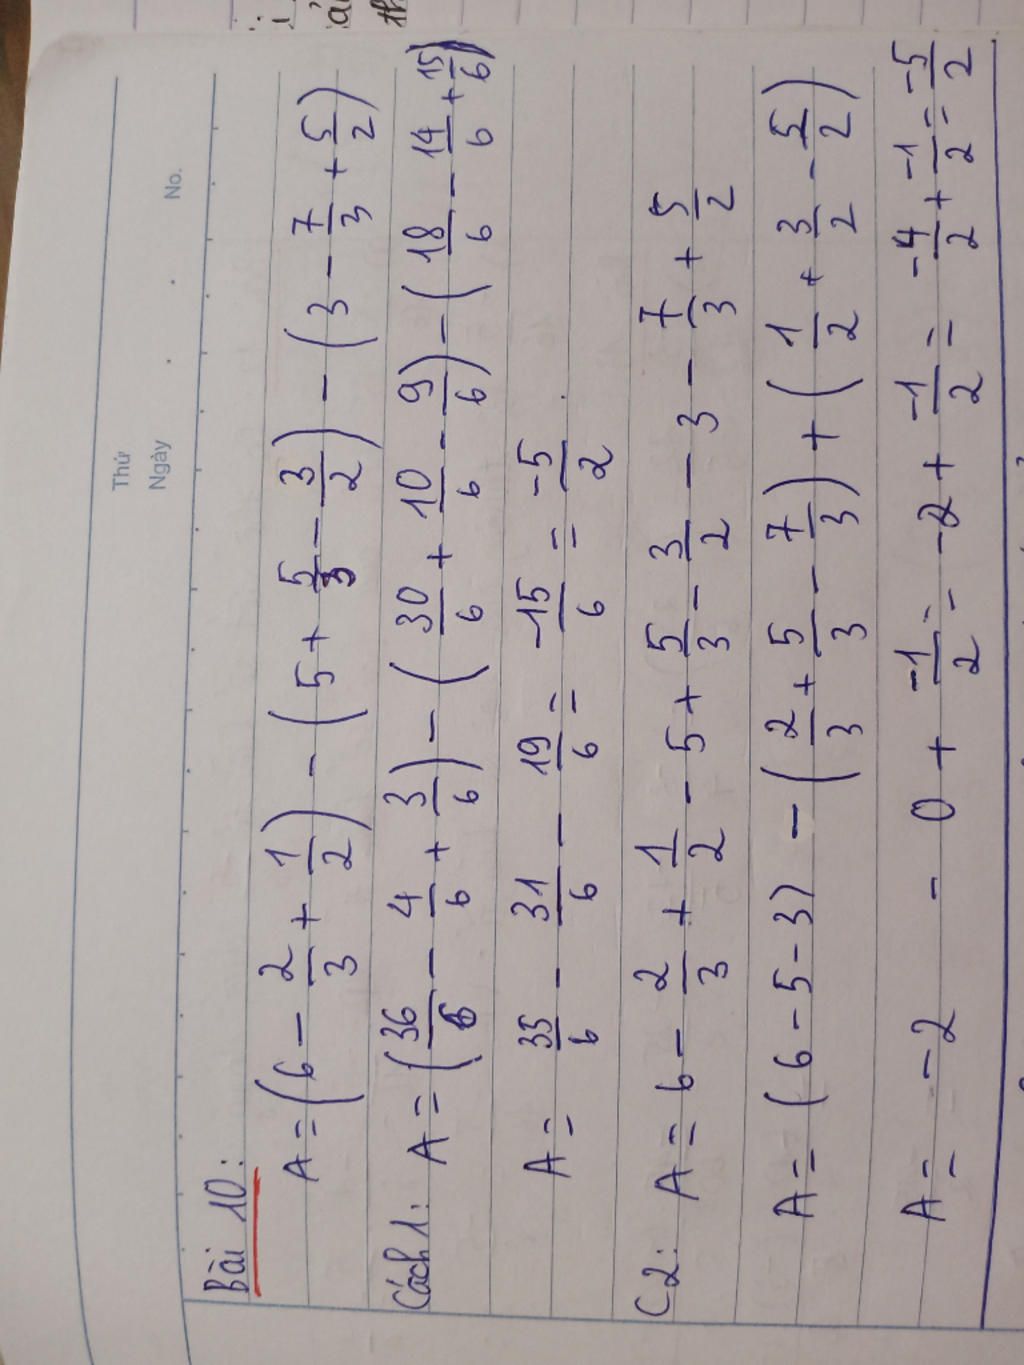 Thứ
Ngày . . No.
Bài 10:
A = (6 - 2/3 + 1/2) - (5 + 5/3 - 3/2) - (3 - 7/3 + 5/2)
Cách 1: A = (36/6 - 4/6 + 3/6) - (30/6 + 10/6 - 9/6) - (18/6 - 14/6 + 15/6)
A = 35/6 - 31/6 - 19/6 = -15/6 = -5/2
C2: A = 6 - 2/3 + 1/2 - 5 + 5/3 - 3/2 - 3 - 7/3 + 5/2
A = (6 - 5 - 3) - (2/3 + 5/3 - 7/3) + (1/2 + 3/2 - 5/2)
A = -2 - 0 + -1/2 = -2 + -1/2 = -4/2 + -1/2 = -5/2